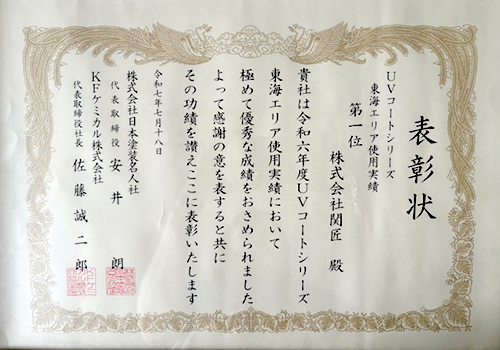 表彰状
UVコートシリーズ
東海エリア使用実績
第一位
株式会社関匠 殿
貴社は令和六年度UVコートシリーズ
東海エリア使用実績において
極めて優秀な成績をおさめられました
よって感謝の意を表すると共に
その功績を讃えここに表彰いたします
令和七年七月十八日
株式会社日本塗装名人社
代表取締役 安井 朗
KFケミカル株式会社
代表取締役社長 佐藤誠二郎